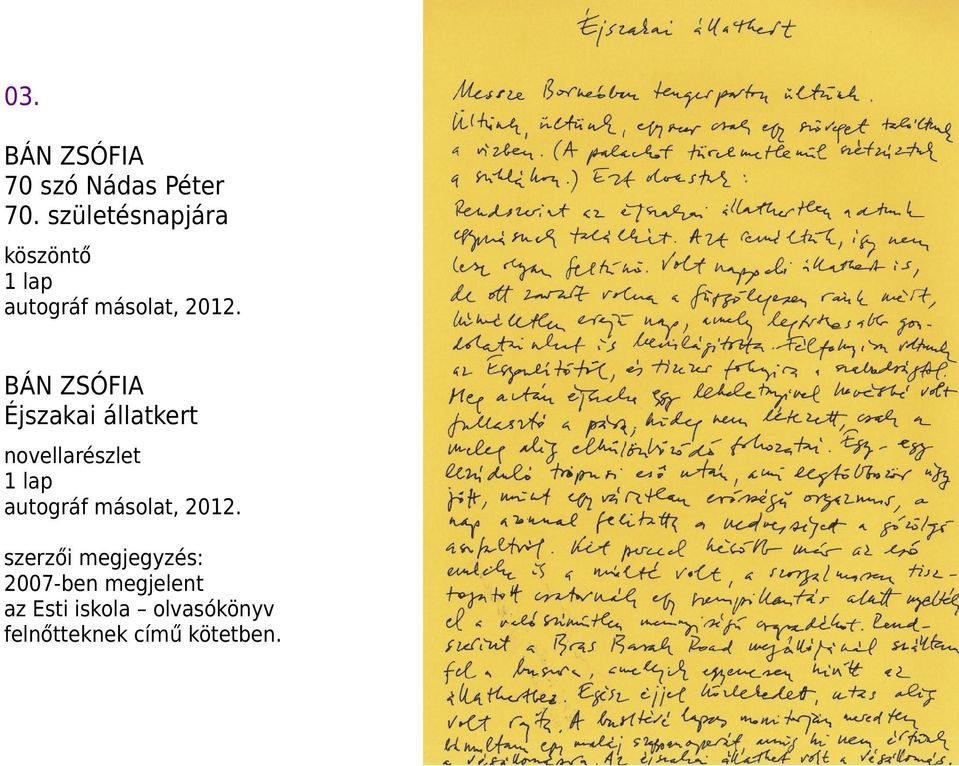 03.
BÁN ZSÓFIA
70 szó Nádas Péter
70. születésnapjára
köszöntő
1 lap
autográf másolat, 2012.
BÁN ZSÓFIA
Éjszakai állatkert
novellarészlet
1 lap
autográf másolat, 2012.
szerzői megjegyzés:
2007-ben megjelent
az Esti iskola – olvasókönyv
felnőtteknek című kötetben.
Éjszakai állatkert
Messze Borneóban tengerparton ültünk.
Ültünk, ültünk, egyszer csak egy szöveget találtunk
a vízben. (A palackot türelmetlenül szétzúztuk
a sziklákon.) Ezt olvastuk:
Rendszerint az éjszakai állatkertben adtunk
egymásnak találkát. Azt reméltük, így nem
lesz olyan feltűnő. Volt nappali állatkert is,
de ott zavart volna a függőlegesen ránk mért,
kíméletlen erejű nap, amely legtitkosabb gon-
dolatainkat is bevilágította. Félfoknyira voltunk
az Egyenlítőtől, és tízezer foknyira a szabadságtól.
Még aztán éjszaka egy lehelletnyivel kevésbé volt
fullasztó a pára, hideg nem létezett, csak a
meleg alig elkülönböződő fokozatai. Egy-egy
lezúduló trópusi eső után, ami legtöbbször úgy
jött, mint egy váratlan erősségű orgazmus, a
nap azonnal felitatta a nedvességet a gőzölgő
aszfaltról. Két perccel később már az eső
emléke is a múlté volt, a szorgalmasan tisz-
togatott csatornák egy szempillantás alatt nyelték
el a valószínűtlen mennyiségű csapadékot. Rend-
szerint a Bras Basah Road megállójánál szálltam
fel a buszra, amelyik egyenesen kivitt az
állatkerthez. Egész éjjel közlekedett, utas alig
volt rajta. A busz tévé lapos monitorján meredten
bámultam egy maláj szappanoperát, amíg ki nem értünk
a végállomásra. Az éjszakai állatkert volt a végállomás.